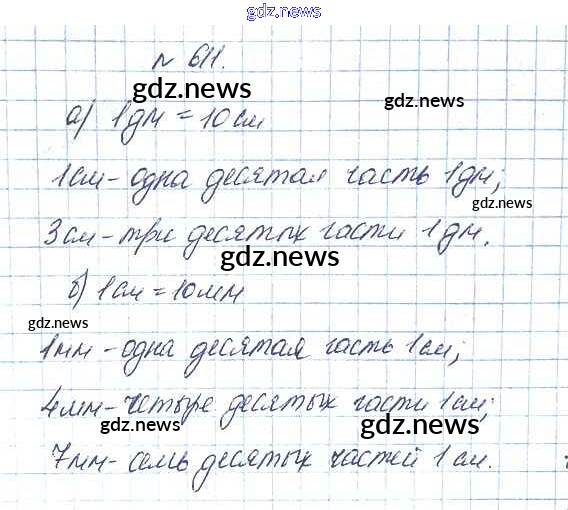 gdz.news
№ 611.
gdz.news
gdz.news
а) 1дм = 10см
1см - одна десятая часть 1дм;
gdz.news
3см - три десятых части 1дм.
gdz.news
б) 1см = 10мм
gdz.news
1мм - одна десятая часть 1см;
4мм - четыре десятых части 1см;
gdz.news
gdz.news
7мм - семь десятых частей 1см.